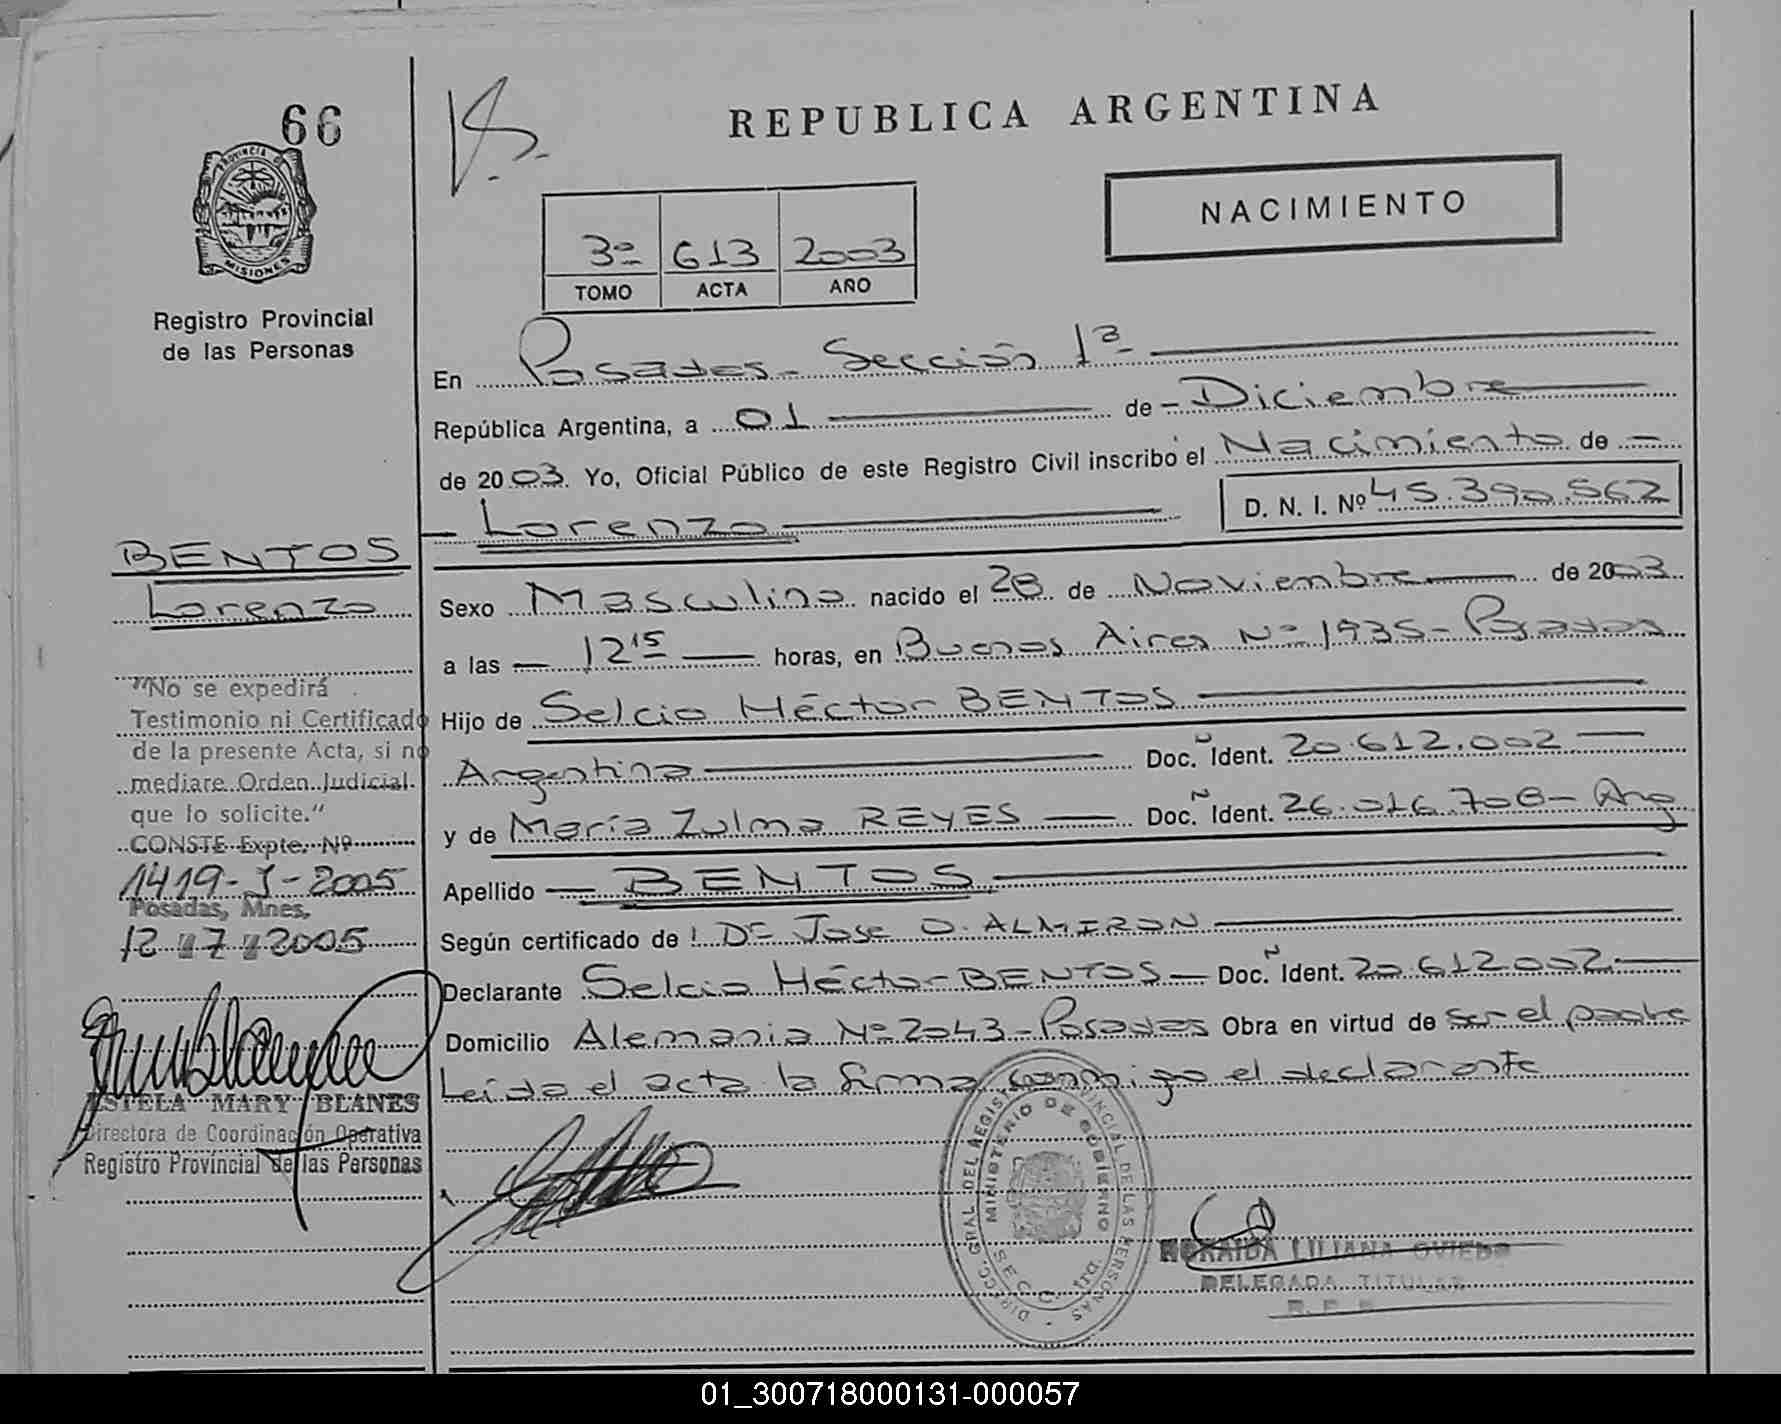 66
REPUBLICA ARGENTINA
PROVINCIA DE
MISIONES
Registro Provincial
de las Personas
NACIMIENTO
3º 613 2003
TOMO ACTA AÑO
En Posadas - Sección 1ª
República Argentina, a 01 de - Diciembre
de 2003. Yo, Oficial Público de este Registro Civil inscribo el Nacimiento de -
- Lorenzo D. N. I. Nº 45.390.562
BENTOS
Lorenzo
Sexo Masculino nacido el 28 de Noviembre de 2003
a las - 12 15 - horas, en Buenos Aires Nº 1935 - Posadas
Hijo de Selcio Héctor BENTOS
Argentina Doc. N Ident. 20.612.002
y de María Zulma REYES Doc. N Ident. 26.016.708 - Arg
Apellido - BENTOS
Según certificado de Dr José O. ALMIRON
Declarante Selcio Héctor BENTOS - Doc. N Ident. 20.612.002
Domicilio Alemania Nº 2043 - Posadas Obra en virtud de ser el padre
Leída el acta la firma conmigo el declarante
"No se expedirá
Testimonio ni Certificado
de la presente Acta, si no
mediare Orden Judicial
que lo solicite."
CONSTE Expte. Nº
1419-J-2005
Posadas, Mnes,
12 7 2005
ESTELA MARY BLANES
Directora de Coordinación Operativa
Registro Provincial de las Personas
DIRECC. GRAL DEL REGISTRO PROVINCIAL DE LAS PERSONAS
MINISTERIO DE GOBIERNO
LILIANA OVIEDO
DELEGADA TITULAR
01_300718000131-000057